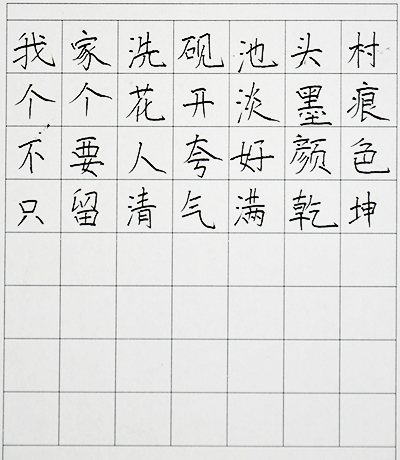 我家洗砚池头村
个个花开淡墨痕
不要人夸好颜色
只留清气满乾坤